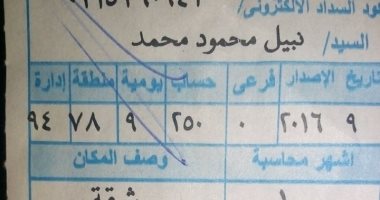 كود السداد الالكترونى/
السيد/ نبيل محمود محمد
تاريخ الإصدار فرعى حساب يومية منطقة إدارة
٩ ٢٠١٦ ٠ ٢٥٠ ٩ ٧٨ ٩٤
اشهر محاسبة وصف المكان
١ شقة